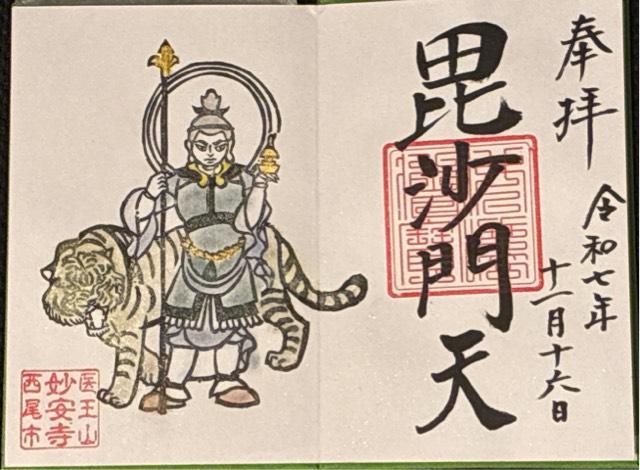 奉拝
令和七年
十一月十六日
毘沙門天
医王山
妙安寺
西尾市